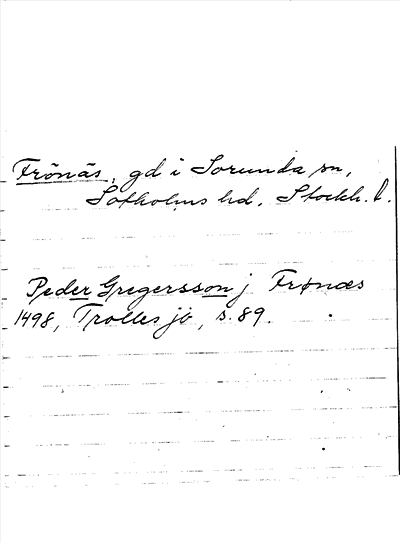 Frönäs, gd i Sorunda sn,
Sotholms hd, Stockh. l.
Peder Gregersson j Frønæs
1498, Trolles jb, s. 89.